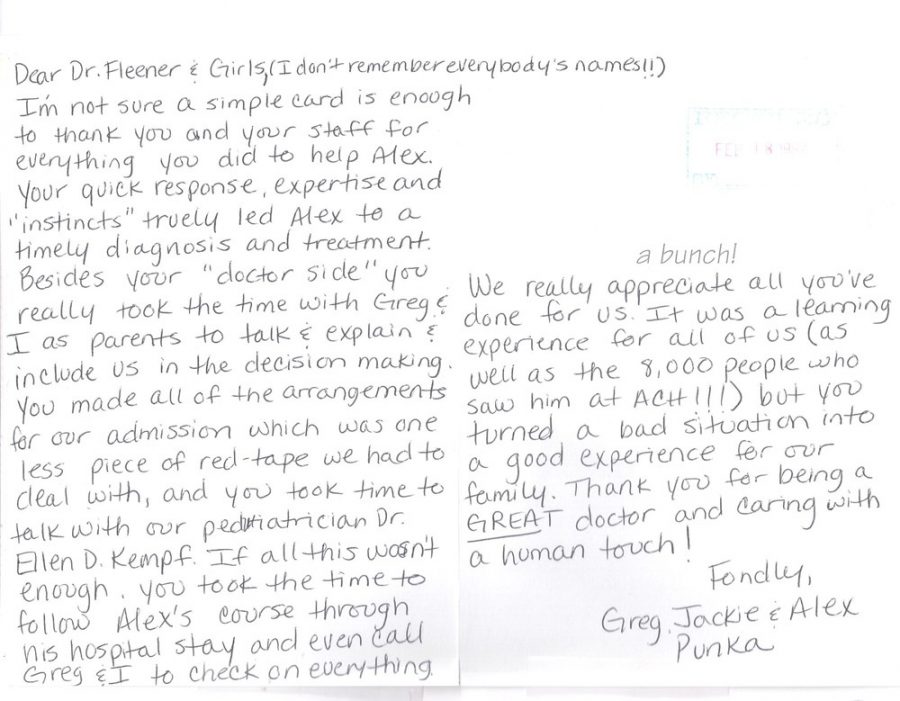 Dear Dr. Fleener & Girls, (I don't remember everybody's names!!)
I'm not sure a simple card is enough
to thank you and your staff for
everything you did to help Alex.
Your quick response, expertise and
"instincts" truely led Alex to a
timely diagnosis and treatment.
Besides your "doctor side" you
really took the time with Greg &
I as parents to talk & explain &
include us in the decision making.
You made all of the arrangements
for our admission which was one
less piece of red-tape we had to
deal with, and you took time to
talk with our pediatrician Dr.
Ellen D. Kempf. If all this wasn't
enough, you took the time to
follow Alex's course through
his hospital stay and even call
Greg & I to check on everything.
FEB 18
a bunch!
We really appreciate all you've
done for us. It was a learning
experience for all of us (as
well as the 8,000 people who
saw him at ACH!!!) but you
turned a bad situation into
a good experience for our
family. Thank you for being a
GREAT doctor and caring with
a human touch!
Fondly,
Greg, Jackie & Alex
Punka